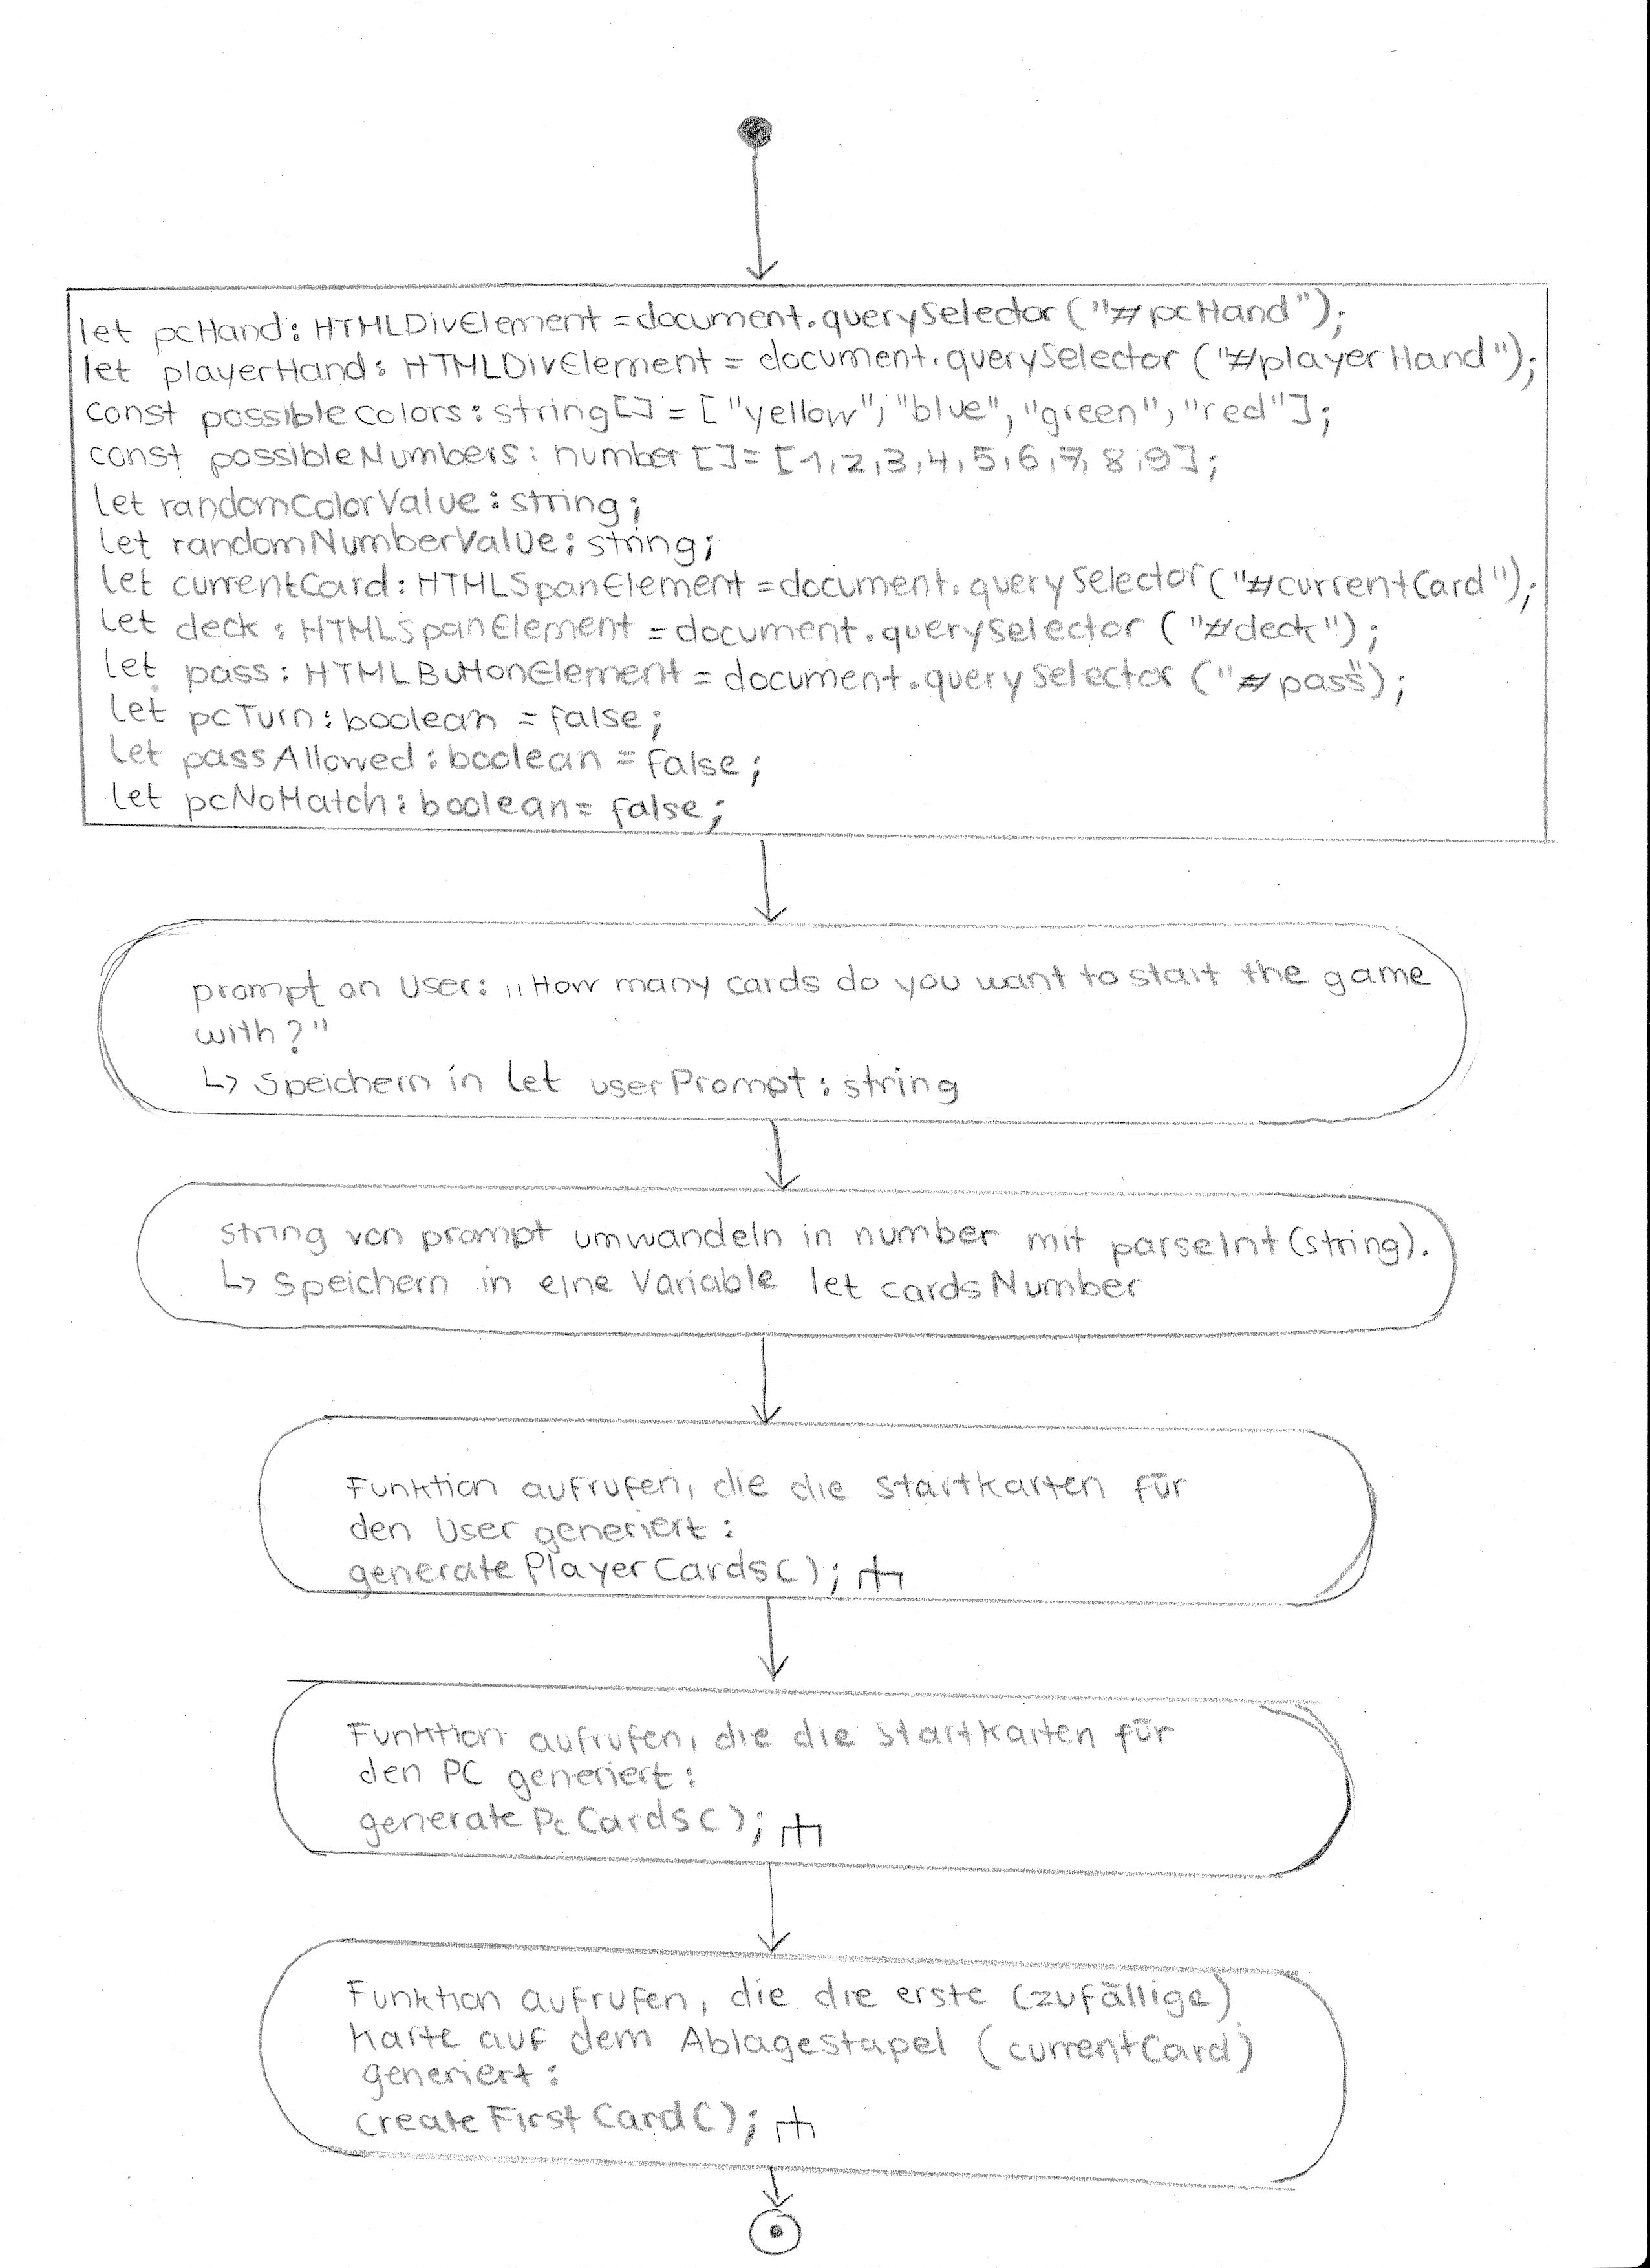 let pcHand: HTMLDivElement = document.querySelector ("#pcHand");
let playerHand: HTMLDivElement = document.querySelector ("#playerHand");
const possibleColors: string[] = ["yellow", "blue", "green", "red"];
const possibleNumbers: number[] = [1,2,3,4,5,6,7,8,9];
let randomColorValue: string;
let randomNumberValue: string;
let currentCard: HTMLSpanElement = document.querySelector("#currentCard");
let deck: HTMLSpanElement = document.querySelector ("#deck");
let pass: HTMLButtonElement = document.querySelector ("#pass");
let pcTurn: boolean = false;
let passAllowed: boolean = false;
let pcNoMatch: boolean = false;
prompt an User: „How many cards do you want to start the game
with?"
↳ Speichern in let userPrompt: string
String von prompt umwandeln in number mit parseInt(string).
↳ Speichern in eine Variable let cardsNumber
Funktion aufrufen, die die Startkarten für
den User generiert:
generatePlayerCards();
Funktion aufrufen, die die Startkarten für
den PC generiert:
generatePcCards();
Funktion aufrufen, die die erste (zufällige)
Karte auf dem Ablagestapel (currentCard)
generiert:
createFirstCard();